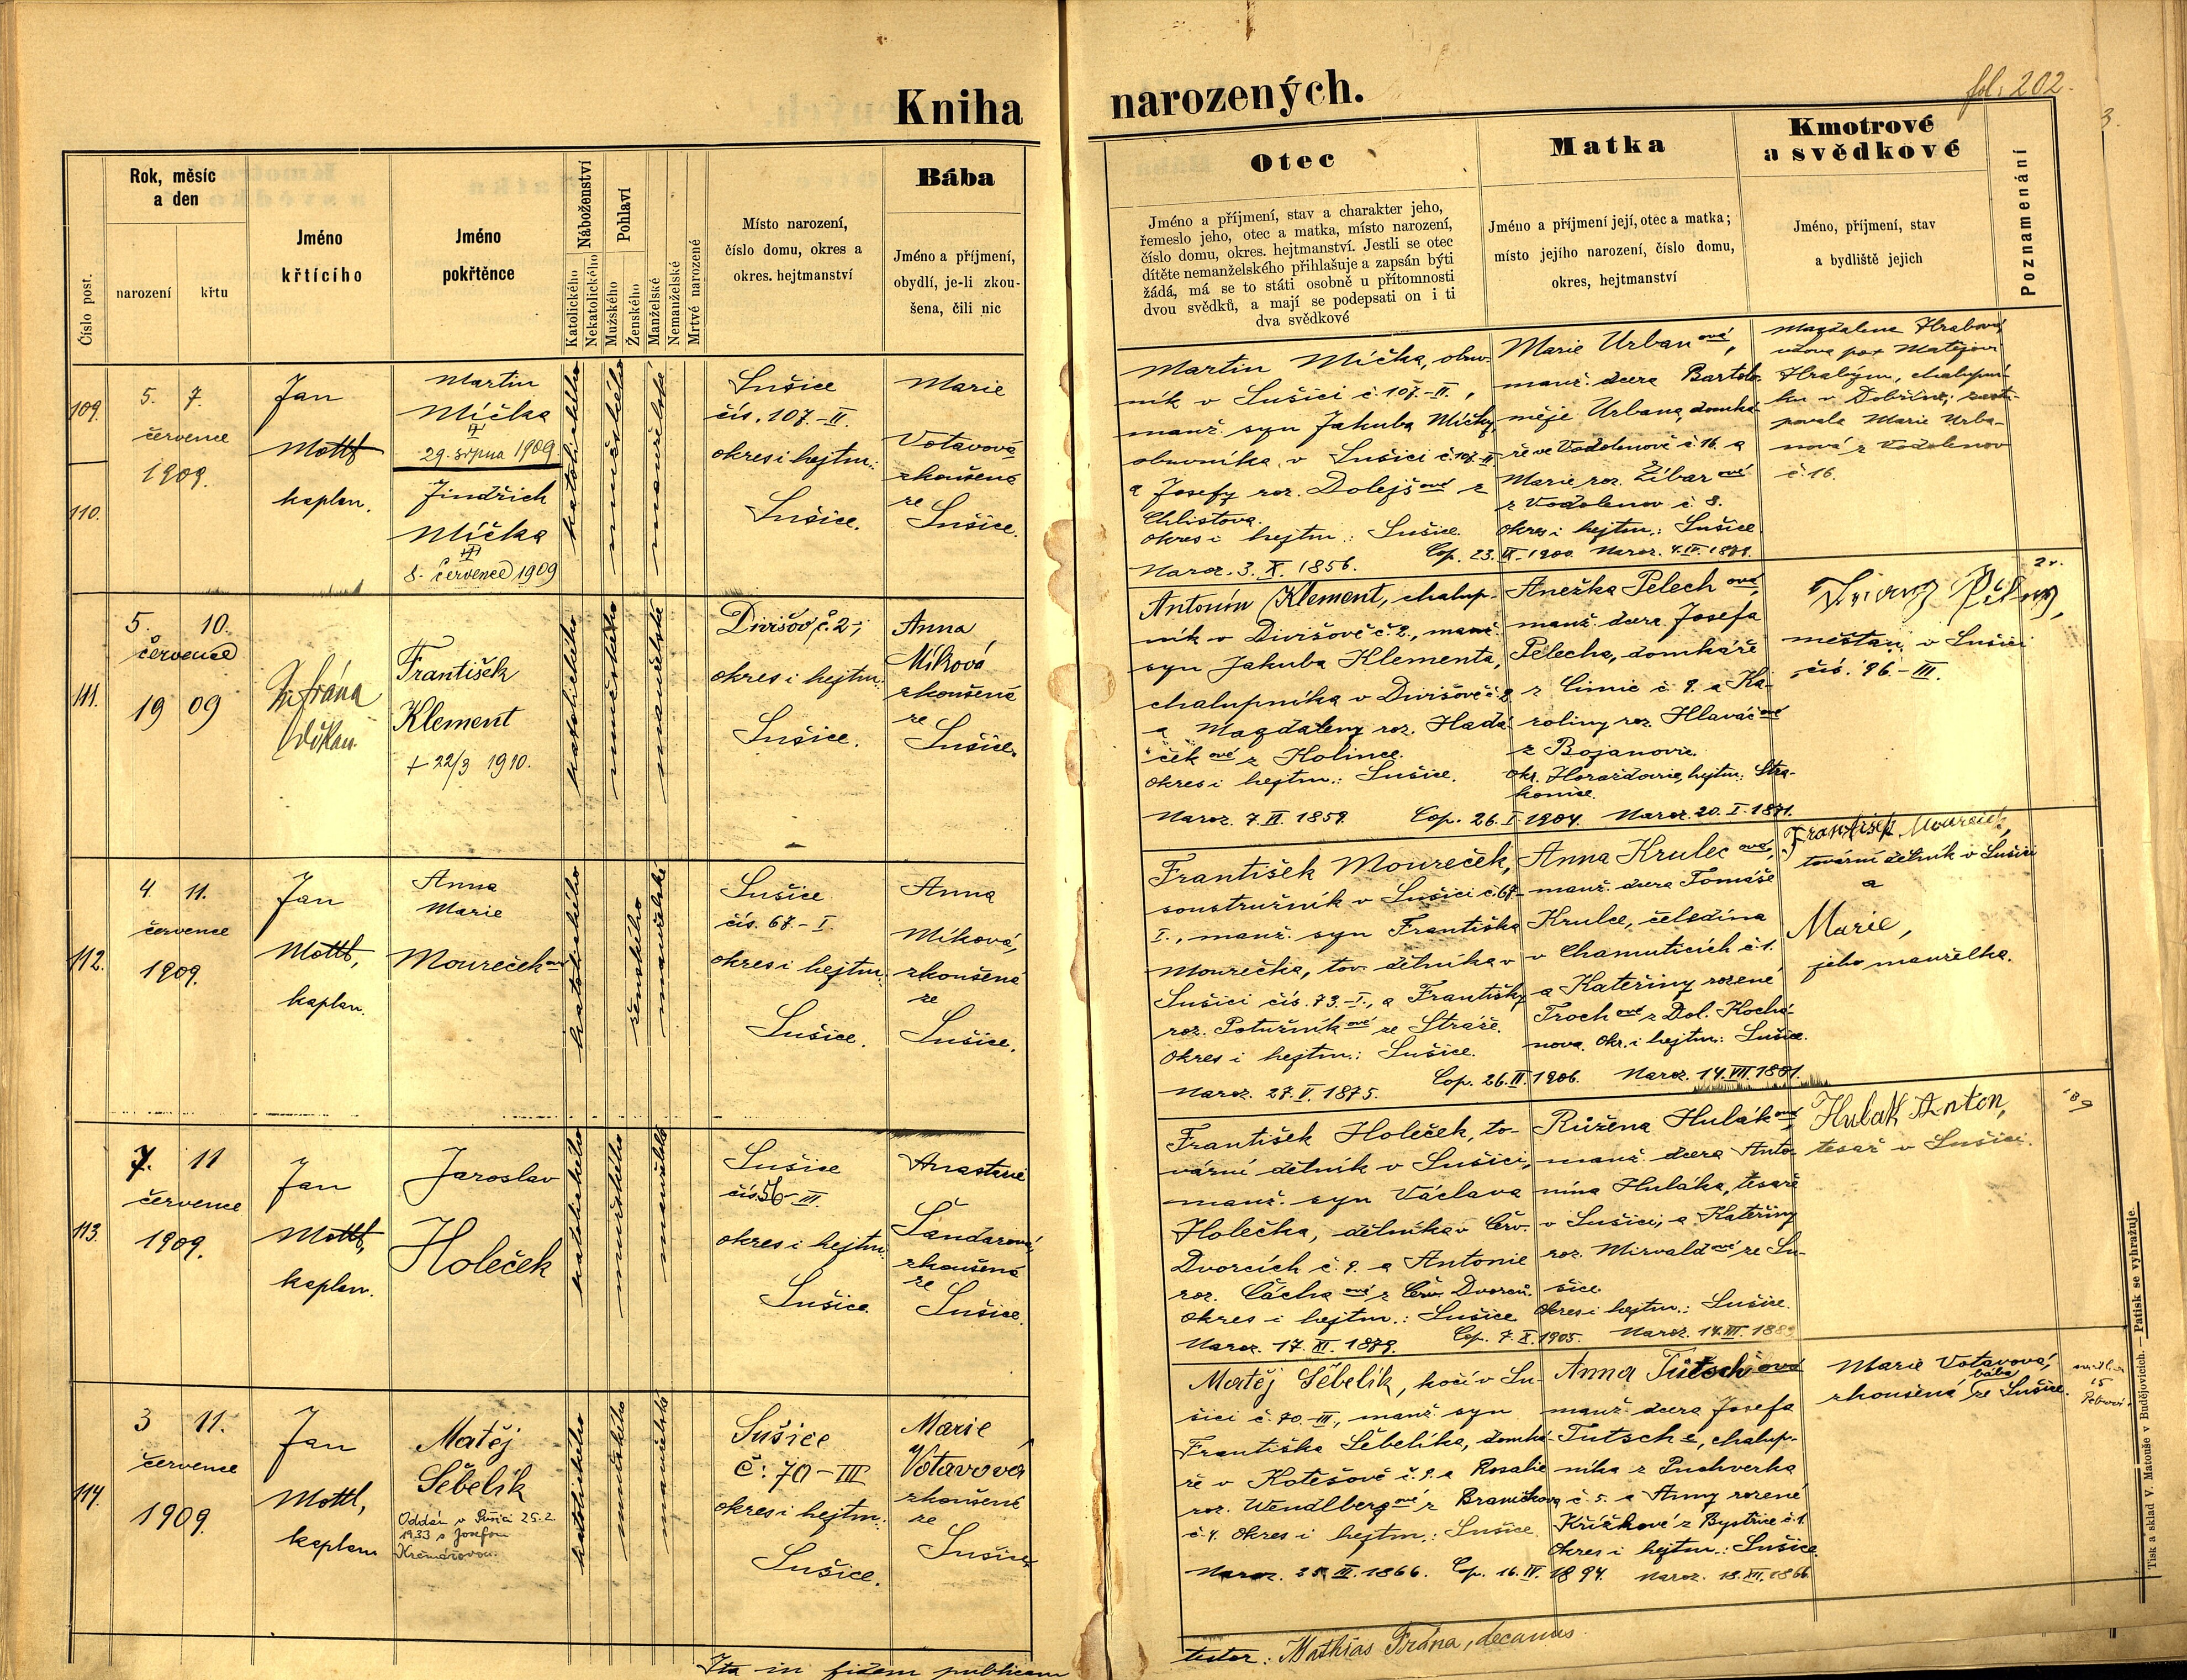 Kniha narozených.
fol. 202.
3.
Číslo post.
Rok, měsíc
a den
narození
křtu
Jméno
křtícího
Jméno
pokřtěnce
Náboženství
Katolického
Nekatolického
Pohlaví
Mužského
Ženského
Manželské
Nemanželské
Mrtvé narozené
Místo narození,
číslo domu, okres a
okres. hejtmanství
Bába
Jméno a příjmení,
obydlí, je-li zkou-
šena, čili nic
Otec
Jméno a příjmení, stav a charakter jeho,
řemeslo jeho, otec a matka, místo narození,
číslo domu, okres. hejtmanství. Jestli se otec
dítěte nemanželského přihlašuje a zapsán býti
žádá, má se to státi osobně u přítomnosti
dvou svědků, a mají se podepsati on i ti
dva svědkové
Matka
Jméno a příjmení její, otec a matka;
místo jejího narození, číslo domu,
okres, hejtmanství
Kmotrové
a svědkové
Jméno, příjmení, stav
a bydliště jejich
Poznamenání
109.
110.
5. 7.
července
1909.
Jan
Mottl
kaplan.
Martin
Míčka
29. srpna 1909
Jindřich
Míčka
8. července 1909
katolického
mužského
manželské
Sušice
čís. 107.-II.
okres i hejtm.:
Sušice.
Marie
Votavová
zkoušená
ze
Sušice.
Martin Míčka, obuv-
ník v Sušici č. 107.-II.,
manž. syn Jakuba Míčky,
obuvníka v Sušici č. 107.-II.
a Josefy roz. Dolejšové z
Chlistova.
okres i hejtm.: Sušice.
Naroz. 3. X. 1856.
Cop. 23. IX. 1900.
Marie Urbanová,
manž. dcera Bartolo-
měje Urbana, domká-
ře ve Vodolenově č. 16. a
Marie roz. Žíbarové
z Vodolenov č. 8.
okres i hejtm.: Sušice.
Naroz. 4. IV. 1879.
Magdalena Hrabová,
vdova po Matějovi
Hrabým, chalupní-
ku v Dobršíně; zastu-
povala Marie Urba-
nová z Vodolenov
č. 16.
111.
5. 10.
července
19 09
M. Frána
děkan.
František
Klement
+ 22/3 1910.
katolického
mužského
manželské
Divišov č. 2.;
okres i hejtm.:
Sušice.
Anna
Míková
zkoušená
ze
Sušice.
Antonín Klement, chalup-
ník v Divišově č. 2., manž.
syn Jakuba Klementa,
chalupníka v Divišově č. 2
a Magdaleny roz. Hadá-
čkové z Kolince.
okres i hejtm.: Sušice.
Naroz. 7. VI. 1859.
Cop. 26. I. 1904.
Anežka Pelechová,
manž. dcera Josefa
Pelecha, domkáře
z Čímic č. 9. a Ka-
roliny roz. Hlaváčové
z Bojanovic.
okr. Horažďovice, hejtm.: Stra-
konice.
Naroz. 20. I. 1871.
měšťan v Sušici
čís. 96.-III.
112.
4. 11.
července
1909.
Jan
Mottl,
kaplan.
Anna
Marie
Mourečková
katolického
ženského
manželské
Sušice
čís. 67.-I.
okres i hejtm.:
Sušice.
Anna
Míková,
zkoušená
ze
Sušice.
František Moureček,
soustružník v Sušici č. 67-
I., manž. syn Františka
Mourečka, tov. dělníka v
Sušici čís. 73.-I., a Františky
roz. Potužníkové ze Stráže.
Okres i hejtm.: Sušice.
Naroz. 27. V. 1875.
Cop. 26. II. 1906.
Anna Krulcová,
manž. dcera Tomáše
Krulce, čeledína
v Chamuticích č. 1.
a Kateřiny rozené
Trochové z Dol. Kochá-
nova. Okr. i hejtm.: Sušice.
Naroz. 14. VIII. 1881.
František Moureček,
tovární dělník v Sušici
a
Marie,
jeho manželka.
113.
7. 11
července
1909.
Jan
Mottl,
kaplan.
Jaroslav
Holeček
katolického
mužského
manželské
Sušice
čís. 56-III.
okres i hejtm.:
Sušice.
Anastasie
Šandarová,
zkoušená
ze
Sušice.
František Holeček, to-
vární dělník v Sušici,
manž. syn Václava
Holečka, dělníka v Červ.
Dvorcích č. 9. a Antonie
roz. Čáchové z Červ. Dvorců.
okres i hejtm.: Sušice
Naroz. 17. XI. 1879.
Cop. 7. X. 1905.
Růžena Huláková,
manž. dcera Anto-
nína Huláka, tesaře
v Sušici, a Kateřiny
roz. Mirvaldové ze Su-
šice
Okres i hejtm.: Sušice.
Naroz. 14. III. 1889
Hulak Anton,
tesař v Sušici.
114.
3 11.
července
1909.
Jan
Mottl,
kaplan
Matěj
Šebelík
Oddán v Sušici 25.2.
1933 s Josefou
Krčmářovou.
katolického
mužského
manželské
Sušice
č: 70-III
okres i hejtm.:
Sušice.
Marie
Votavová
zkoušená
ze
Sušice
Matěj Šebelík, kočí v Su-
šici č. 70.-III., manž. syn
Františka Šebelíka, domká-
ře v Kotěšově č. 9. a Rosalie
roz. Wendlbergové z Braníčkova
č. 4. Okres i hejtm.: Sušice.
Naroz. 25. III. 1866.
Cop. 16. IV. 1894.
Anna Tutschová
manž. dcera Josefa
Tutsche, chalup-
níka z Puchverka
č. 5. a Anny rozené
Křížkové z Bystřice č. 1.
Okres i hejtm.: Sušice.
Naroz. 18. XII. 1866.
Marie Votavová,
zkoušená bába ze Sušice.
Ita in fidem publicam
testor: Mathias Frána, decanus.
Tisk a sklad V. Matouše v Budějovicích. — Patisk se vyhražuje.